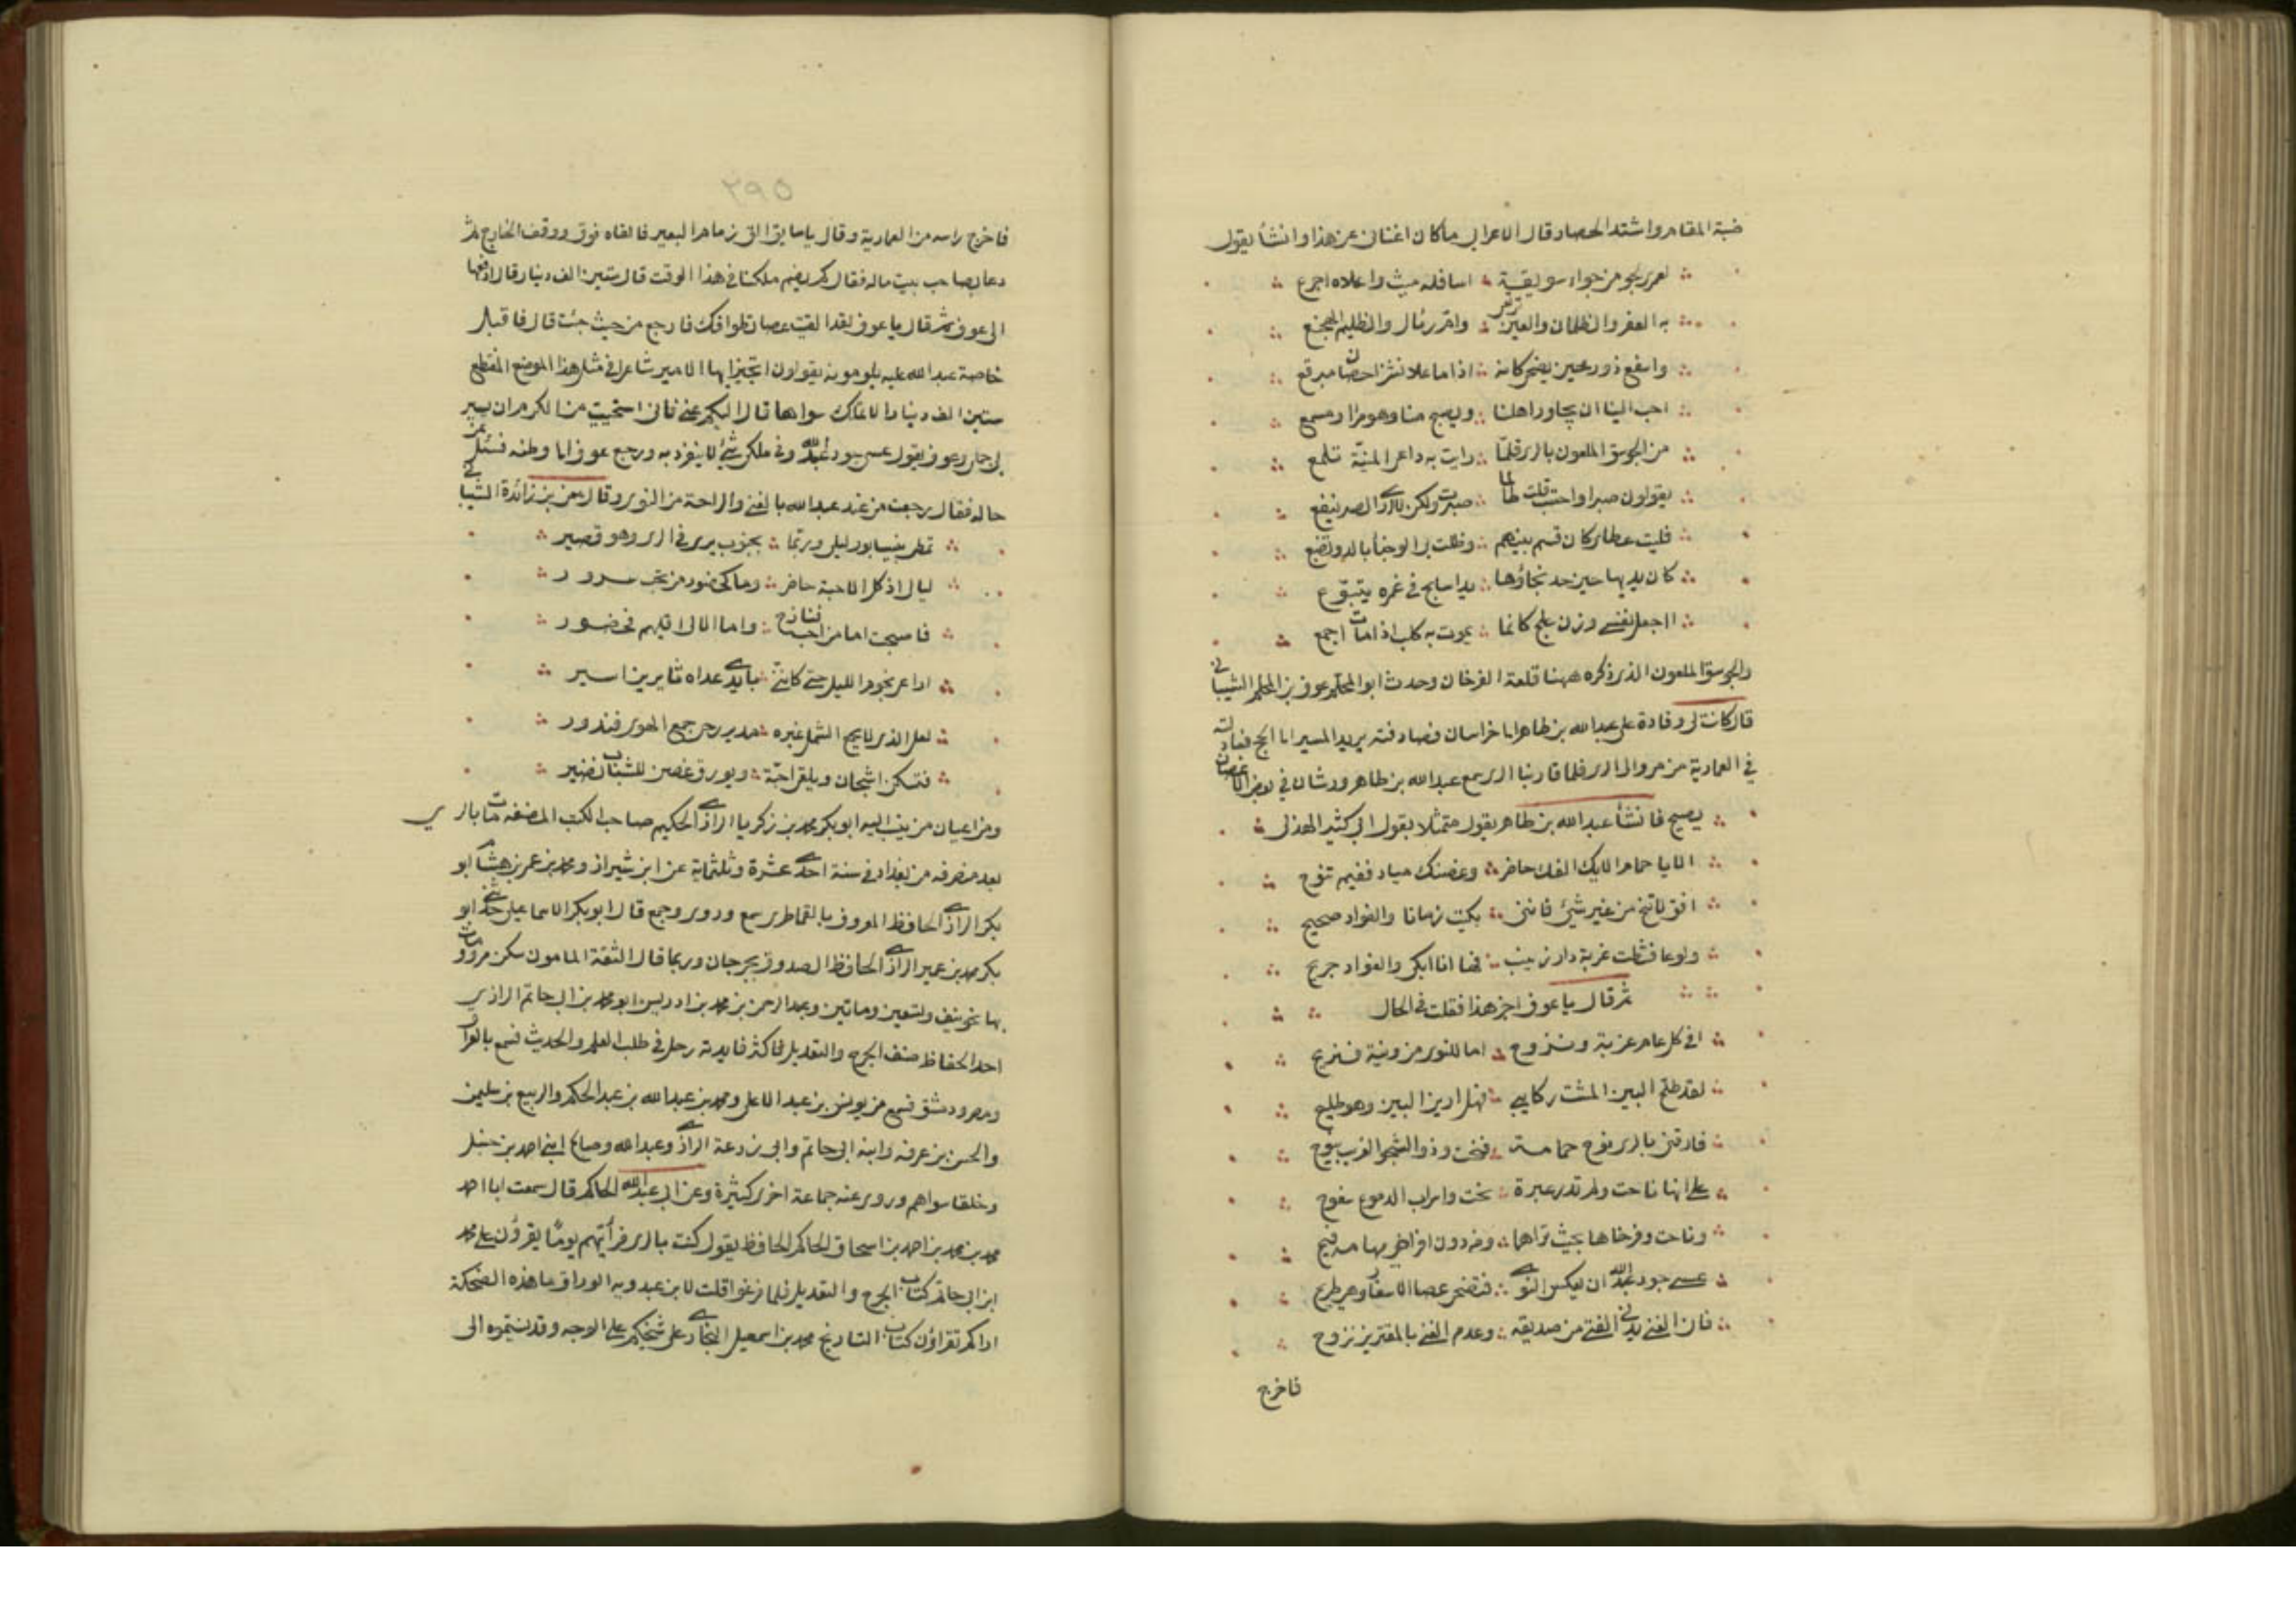 ضبة المقام واشتد الحصاد قال الاعرابي ما كان اغناني عن هذا وانشأ يقول
لعمري لجو من جواء سويقة اسافله ميث واعلاه اجرع
به العفر والظلمان والعين ترتعى وام رئال والظليم الهجنع
واسفع ذو رمحين يضحى كانه اذا ما علا نشزا حصان مبرقع
احب الينا ان يجاور اهلنا ويصبح منا وهو مرا ومسمع
من الجوسق الملعون بالرى كلما رايت به داعى المنية تلمع
يقولون صبرا واحتسب قلت طالما صبرت ولكن لا ارى الصبر ينفع
فليت عطائي كان قسم بينهم وظلت بي الوجناء بالدو تضبع
كان يديها حين جد نجاؤها يدا سابح في غمره يتبوع
ااجعل نفسي وزن علج كانما يموت به كلب اذا مات اجمع
والجوسق الملعون الذى ذكره ههنا قلعة الفرخان وحدث ابو المحلم عوف بن المحلم الشيباني
قال كانت لى وفادة على عبد الله بن طاهر الى خراسان فصادفته يريد المسير الى الحج فعادلته
في العمارية من مرو الى الرى فلما قاربنا الرى سمع عبد الله بن طاهر ورشان في بعض الاغصان
يصيح فانشأ عبد الله بن طاهر يقول متمثلا بقول ابي كثير الهذلى
الا يا حمام الايك الفك حاضر وغصنك مياد ففيم تنوح
افق لا تنح من غير شئ فاننى بكيت زمانا والفواد صحيح
ولوعا فشطت غربة دار زينب فها انا ابكى والفواد جريح
ثم قال يا عوف اجز هذا فقلت في الحال
افي كل عام غربة ونزوح اما للنوى من ونية فنريح
لقد طلح البين المشت ركايبي فهل ارين البين وهو طليح
فارقنى بالرى نوح حمامة فنحت وذو الشجو الغريب ينوح
على انها ناحت ولم تذر عبرة نحت واسراب الدموع سفوح
وناحت وفرخاها بحيث تراهما ومن دون افراخي مهامه فيح
عسى جود عبد الله ان يعكس النوى فتضحى عصا الاسفار وهى طريح
فان الغنى يدني الفتى من صديقه وعدم الغنى بالمقترين نزوح
فاخرج
٢٩٥
فاخرج راسه من العمارية وقال يا سايق الق زمام البعير فالقاه فوقف ووقف الخارج ثم
دعا بصاحب بيت ماله فقال كم يضم ملكنا في هذا الوقت قال ستين الف دينار قال ادفعها
الى عوف ثم قال يا عوف لقد القيت عصا تطوافك فارجع من حيث جئت قال فاقبل
خاصة عبد الله عليه يلومونه يقولون اتجيز ايها الامير شاعرا في مثل هذا الموضع المنقطع
ستين الف دينار ولا تملك سواها قال اليكم عنى فانى استحييت من الكرم ان يسير
بى جملى وعوف يقول عسى جود عبد الله وفي ملكى شئ لا ينفرد به ورجع عوف الى وطنه فسئل عن
حاله فقال رجعت من عند عبد الله بالغنى والراحة من النوى وقال معن بن زائدة الشيباني
تمطى بنيسابور ليلى وربما بجنوب يرى في الرى وهو قصير
ليالى اذ كل الاحبة حاضر وما كحضور من تحب سرور
فاصبحت اما من احب فنازح واما الالى اقليهم فحضور
اراعى نجوم الليل حتى كاننى بايدى عداه ثايرين اسير
لعل الذى لا يجمع الشمل غيره مدير رحى جمع الهوى فتدور
فتسكن اشجان ويلقى احبة ويورق غصن للشباب نضير
ومن اعيان من ينسب اليه ابو بكر محمد بن زكريا الرازى الحكيم صاحب الكتب المصنفه مات بالرى
بعد منصرفه من بغداد في سنة احدى عشرة وثلثماية عن ابن شيراز ومحمد بن عمر بن هشام ابو
بكر الرازى الحافظ المعروف بالقماطرى سمع وروى وجمع قال ابو بكر الاسماعيلى حدثنى ابو
بكر محمد بن عمير الرازى الحافظ الصدوق بجرجان وربما قال الثقة المامون سكن مرو ومات
بها نحو نيف وتسعين وماتين وعبد الرحمن بن محمد بن ادريس ابو محمد بن ابى حاتم الرازى
احد الحفاظ صنف الجرح والتعديل فاكثر فايدته رحل في طلب العلم والحديث فسمع بالعراق
ومصر ودمشق فسمع من يونس بن عبد الاعلى ومحمد بن عبد الله بن عبد الحكم والربيع بن سليمن
والحسن بن عرفه وابيه ابى حاتم وابى زرعة الرازى وعبد الله وصالح ابنى احمد بن حنبل
وخلقا سواهم وروى عنه جماعة اخرى كثيرة وعن ابى عبد الله الحاكم قال سمعت ابا احمد
محمد بن محمد بن احمد بن اسحاق الحاكم الحافظ يقول كنت بالرى فرأيتهم يوما يقرؤن على محمد
ابن ابى حاتم كتاب الجرح والتعديل فلما فرغوا قلت لابن عبدويه الوراق ما هذه الضحكة
اراكم تقراؤن كتاب التاريخ محمد بن اسمعيل البخارى على شيخكم على الوجه وقد نسبتموه الى